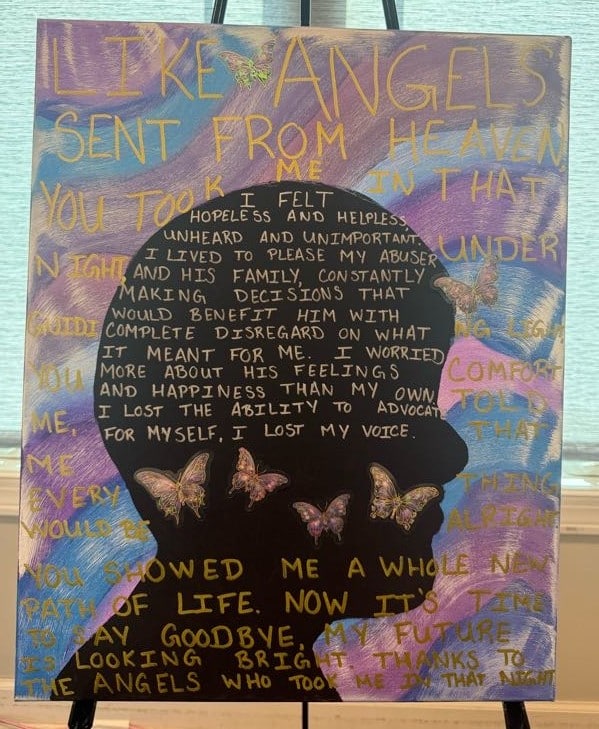 LIKE ANGELS
SENT FROM HEAVEN
YOU TOOK ME IN THAT
NIGHT, UNDER
GUIDING LIGHT
YOU COMFORT
ME, TOLD
ME THAT
EVERY THING
WOULD BE ALRIGHT
YOU SHOWED ME A WHOLE NEW
PATH OF LIFE. NOW IT'S TIME
TO SAY GOODBYE, MY FUTURE
IS LOOKING BRIGHT. THANKS TO
THE ANGELS WHO TOOK ME IN THAT NIGHT
I FELT
HOPELESS AND HELPLESS,
UNHEARD AND UNIMPORTANT.
I LIVED TO PLEASE MY ABUSER
AND HIS FAMILY, CONSTANTLY
MAKING DECISIONS THAT
WOULD BENEFIT HIM WITH
COMPLETE DISREGARD ON WHAT
IT MEANT FOR ME. I WORRIED
MORE ABOUT HIS FEELINGS
AND HAPPINESS THAN MY OWN.
I LOST THE ABILITY TO ADVOCAT
FOR MYSELF, I LOST MY VOICE.